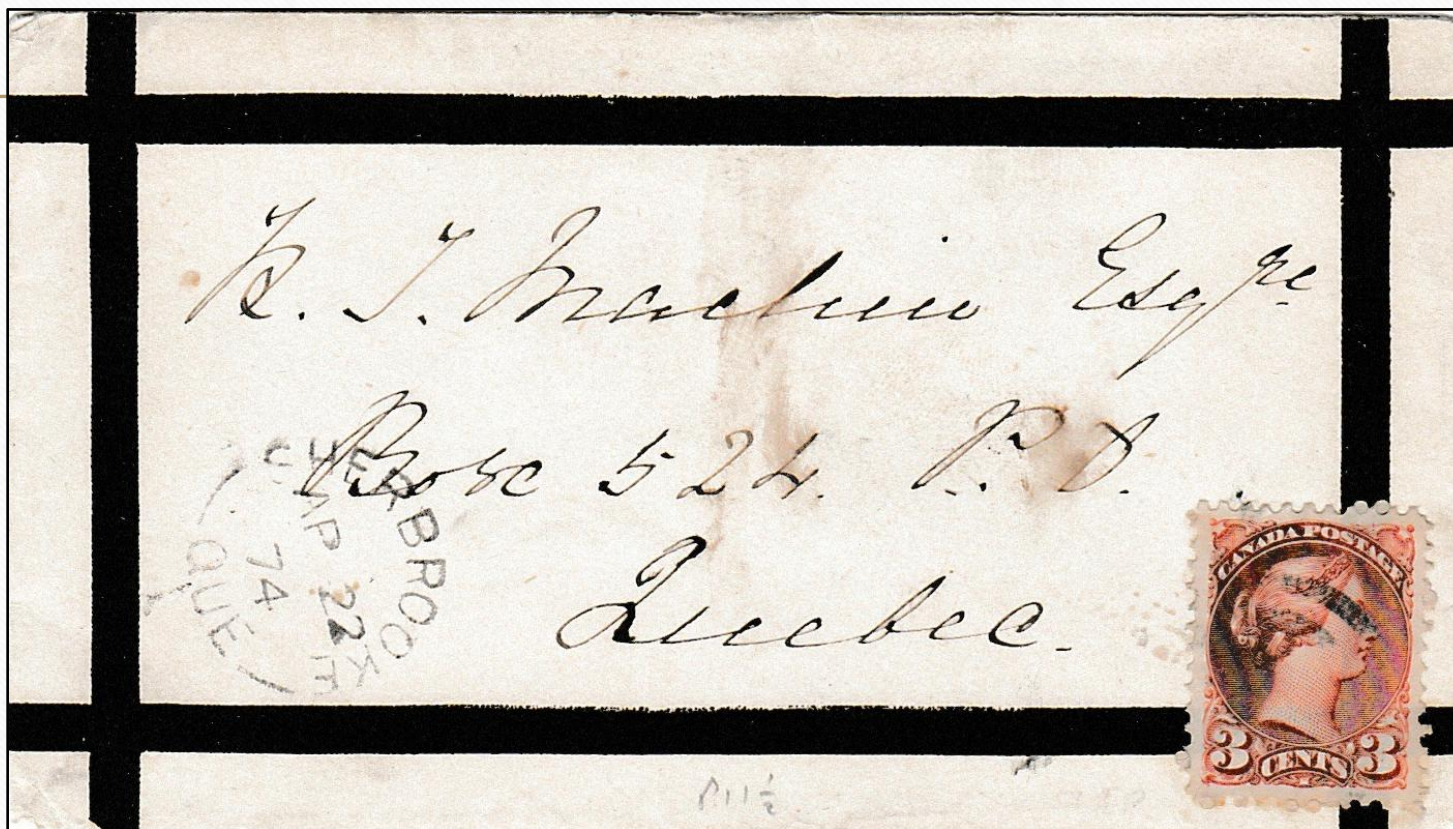 H. T. Machin Esqre
Box 524. P. O.
Quebec.
SHERBROOKE
22
74
QUE
CANADA POSTAGE
3 CENTS 3
P11½